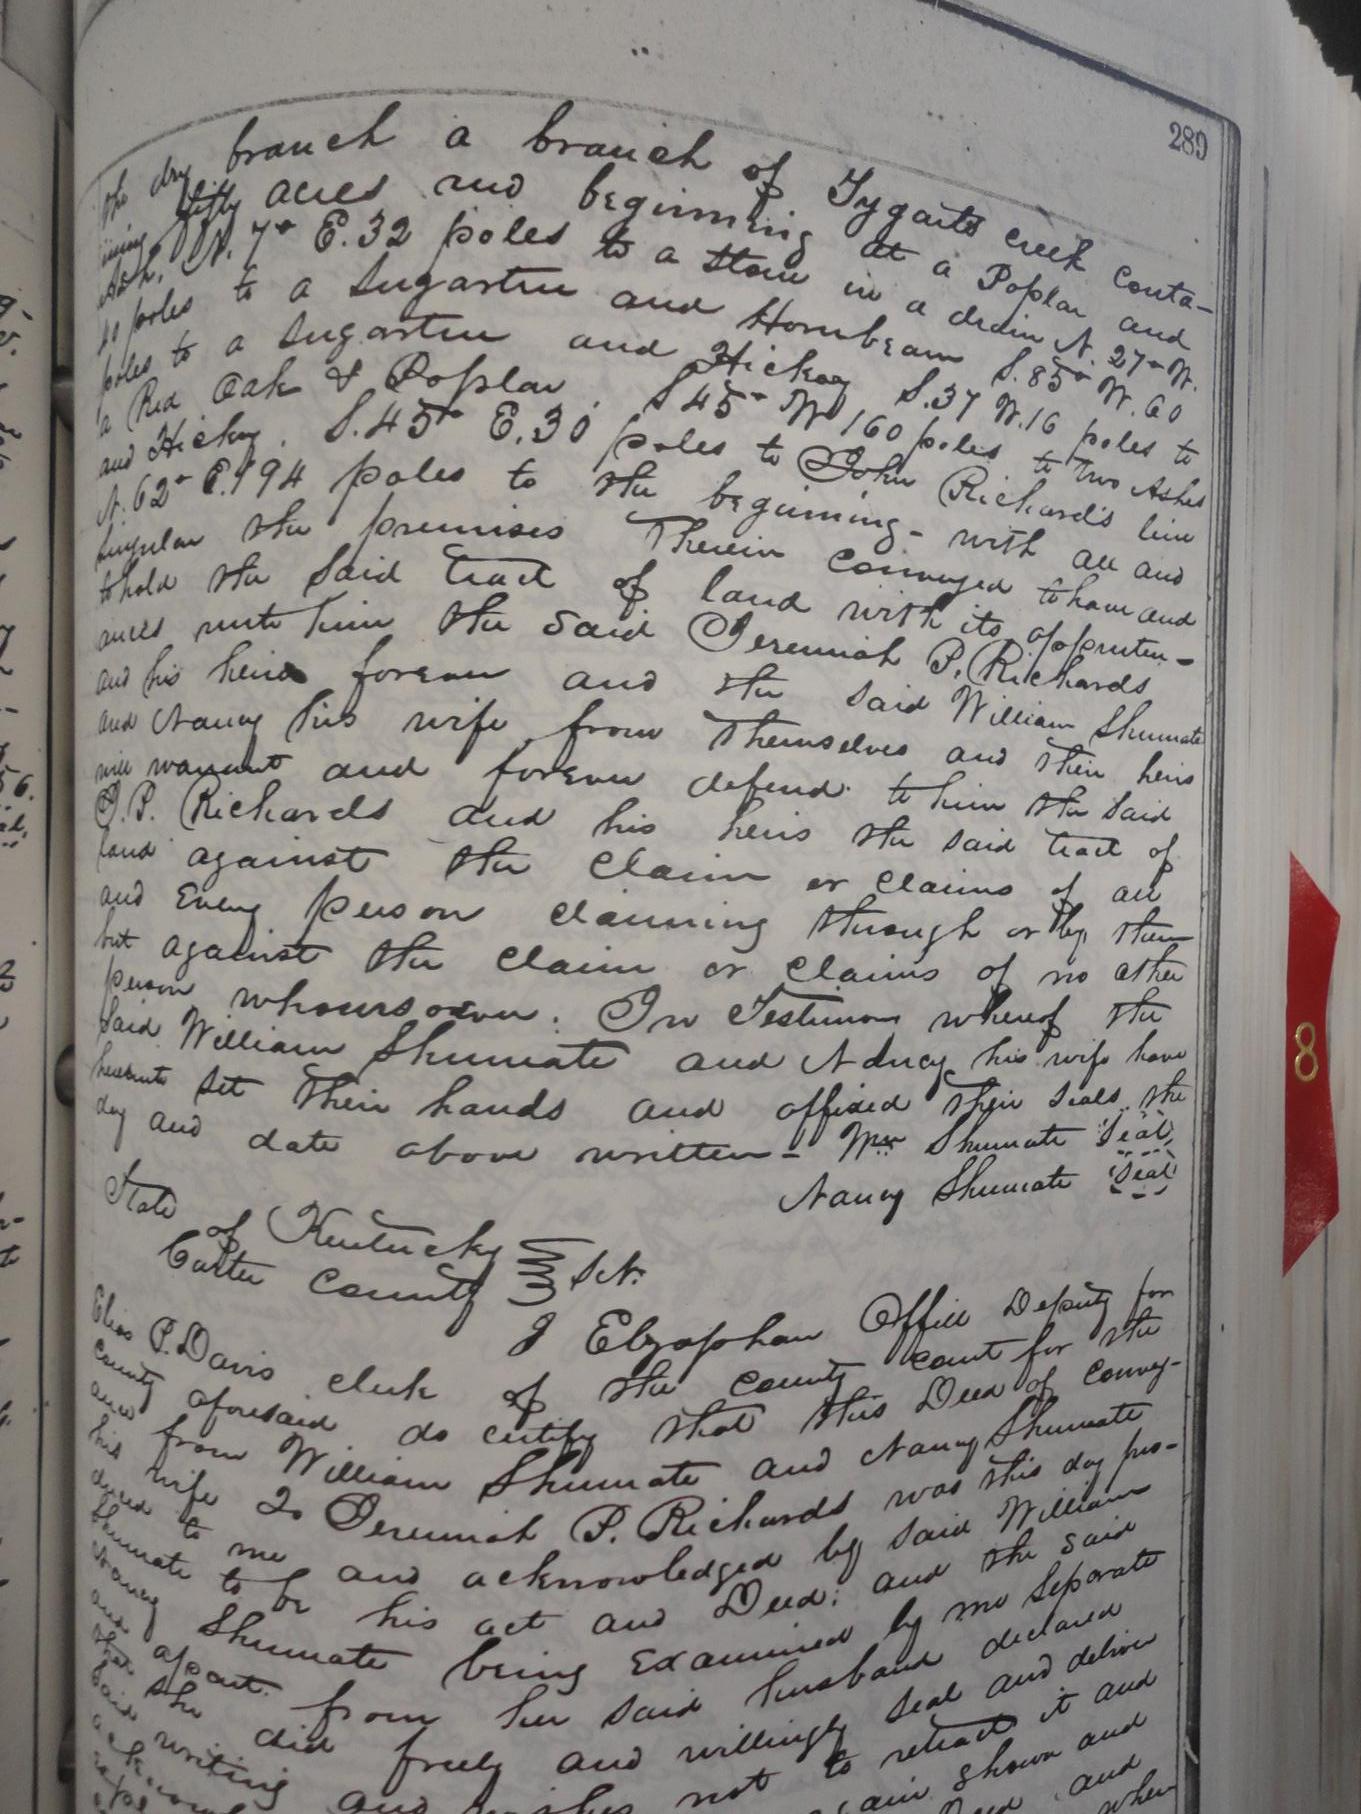 289
the dry branch a branch of Tygarts creek conta-
ining fifty acres and beginning at a Poplar and
Ash, N. 7° E. 32 poles to a stone in a drain N. 27° W.
poles to a Sugartree and Hornbeam S. 85° W. 60
poles to a Sugartree and Hickory S. 37 W. 16 poles to
a Red Oak & Poplar. S 45° W 160 poles to two Ashes
and Hickory. S. 45° E. 30 poles to John Richard's line
N. 62° E. 194 poles to the beginning - with all and
singular the premises Therein conveyed to have and
to hold the said tract of land with its appurten-
ances unto him the said Jeremiah P. Richards
and his heirs forever and the said William Shumate
and Nancy his wife from Themselves and their heirs
will warrant and forever defend to him the said
J. P. Richards and his heirs the said tract of
land against the claim or claims of all
and Every person claiming through or by them
but against the claim or claims of no other
person whomsoever. In Testimony whereof the
said William Shumate and Nancy his wife have
hereunto set their hands and affixed their seals the
day and date above written - Wm Shumate Seal
Nancy Shumate Seal
State of Kentucky
Carter County Sct.
I Elzaphan Offill Deputy for
Elias P. Davis clerk of the county court for the
county aforesaid do certify that this Deed of convey-
ance from William Shumate and Nancy Shumate
his wife To Jeremiah P. Richards was this day pro-
duced to me and acknowledged by said William
Shumate to be his act and Deed: and the said
Nancy Shumate being Examined by me Separate
and apart from her said husband declared
that she did freely and willingly seal and deliver
said writing and wishes not to retract it and
shown and
Deed and
when
8